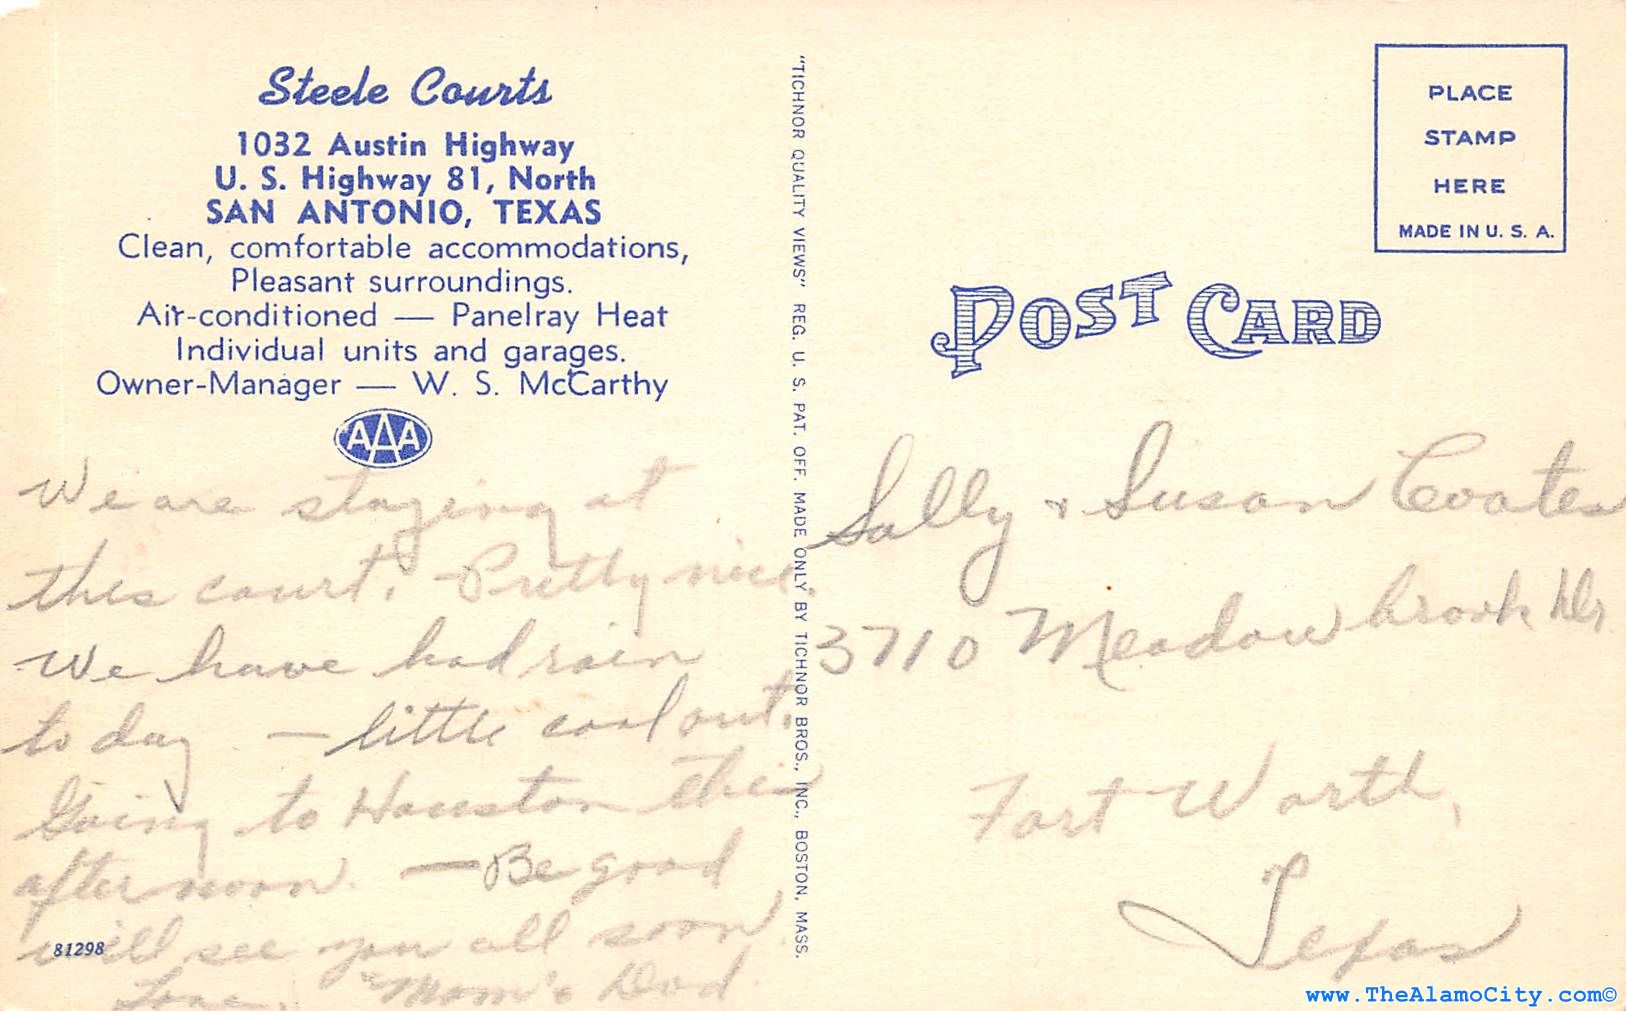 Steele Courts
1032 Austin Highway
U. S. Highway 81, North
SAN ANTONIO, TEXAS
Clean, comfortable accommodations,
Pleasant surroundings.
Air-conditioned — Panelray Heat
Individual units and garages.
Owner-Manager — W. S. McCarthy
AAA
We are staying at
this court. Pretty nice.
We have had rain
to day — little cool out.
Going to Houston this
afternoon. — Be good
will see you all soon.
Love, "Mom" & Dad.
81298
"TICHNOR QUALITY VIEWS" REG. U. S. PAT. OFF. MADE ONLY BY TICHNOR BROS., INC., BOSTON, MASS.
PLACE
STAMP
HERE
MADE IN U. S. A.
POST CARD
Sally & Susan Coates
3710 Meadowbrook Dr.
Fort Worth,
Texas
www.TheAlamoCity.com©